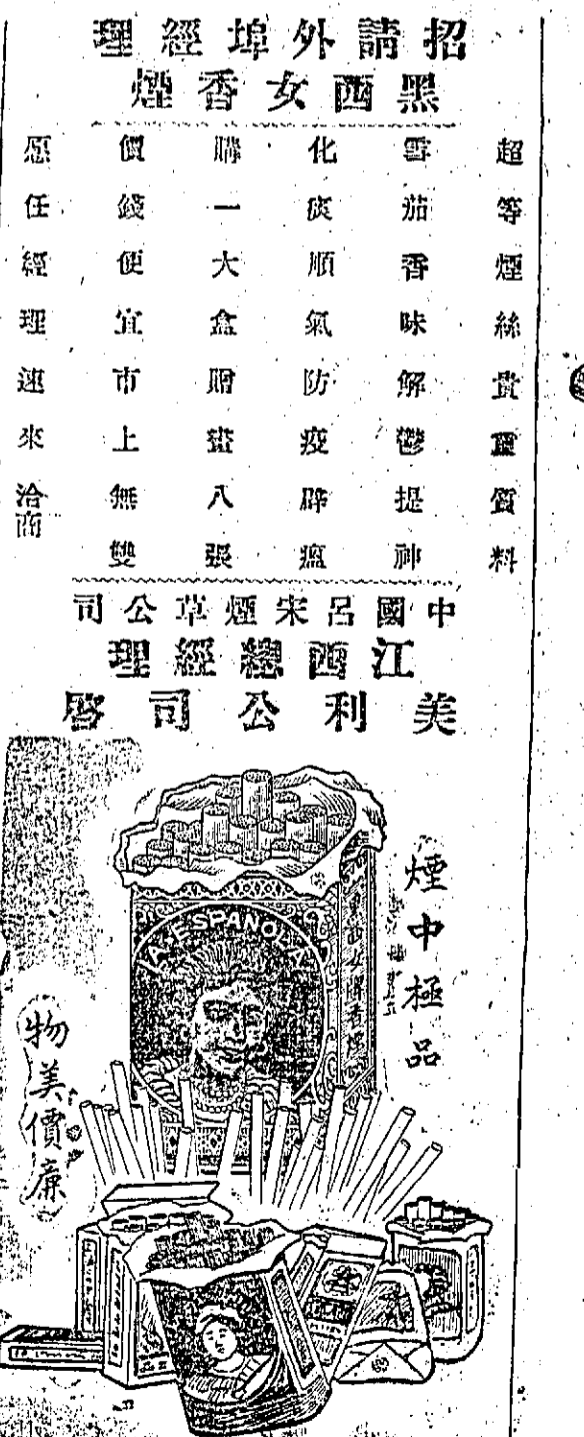 招請外埠經理
黑西女香煙
超等煙絲貴重質料
雪茄香味解鬱提神
化痰順氣防疫辟瘟
購一大盒贈畫八張
價錢便宜市上無雙
愿任經理速來洽商
中國呂宋煙草公司
江西總經理
美利公司啓
煙中極品
LA ESPANOLA
物美價廉